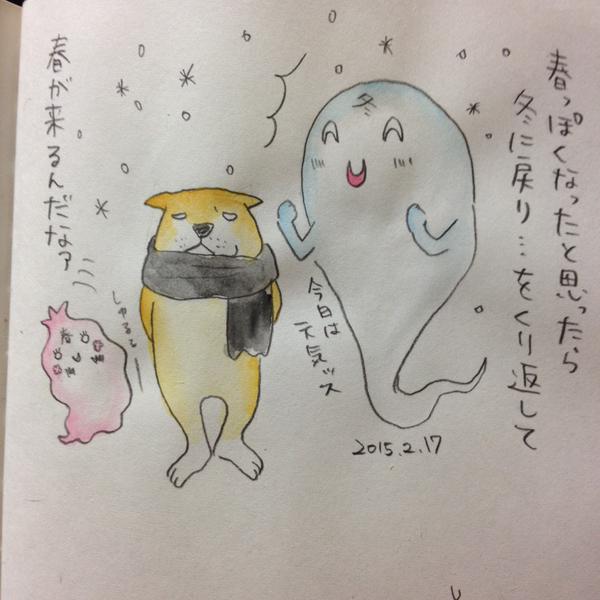 春っぽくなったと思ったら
冬に戻り…をくり返して
春が来るんだなァ
冬
今日は
元気ッス
しゅるる
春
2015.2.17